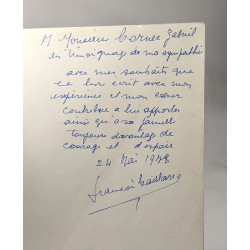 A Monsieur Cornec Gabriel
en témoignage de ma sympathie
avec mes souhaits que
ce livre écrit avec mon
expérience et mon cœur
contribue a lui apporter
ainsi qu'a sa famille
toujours davantage de
courage et d'espoir
24 Mai 1978